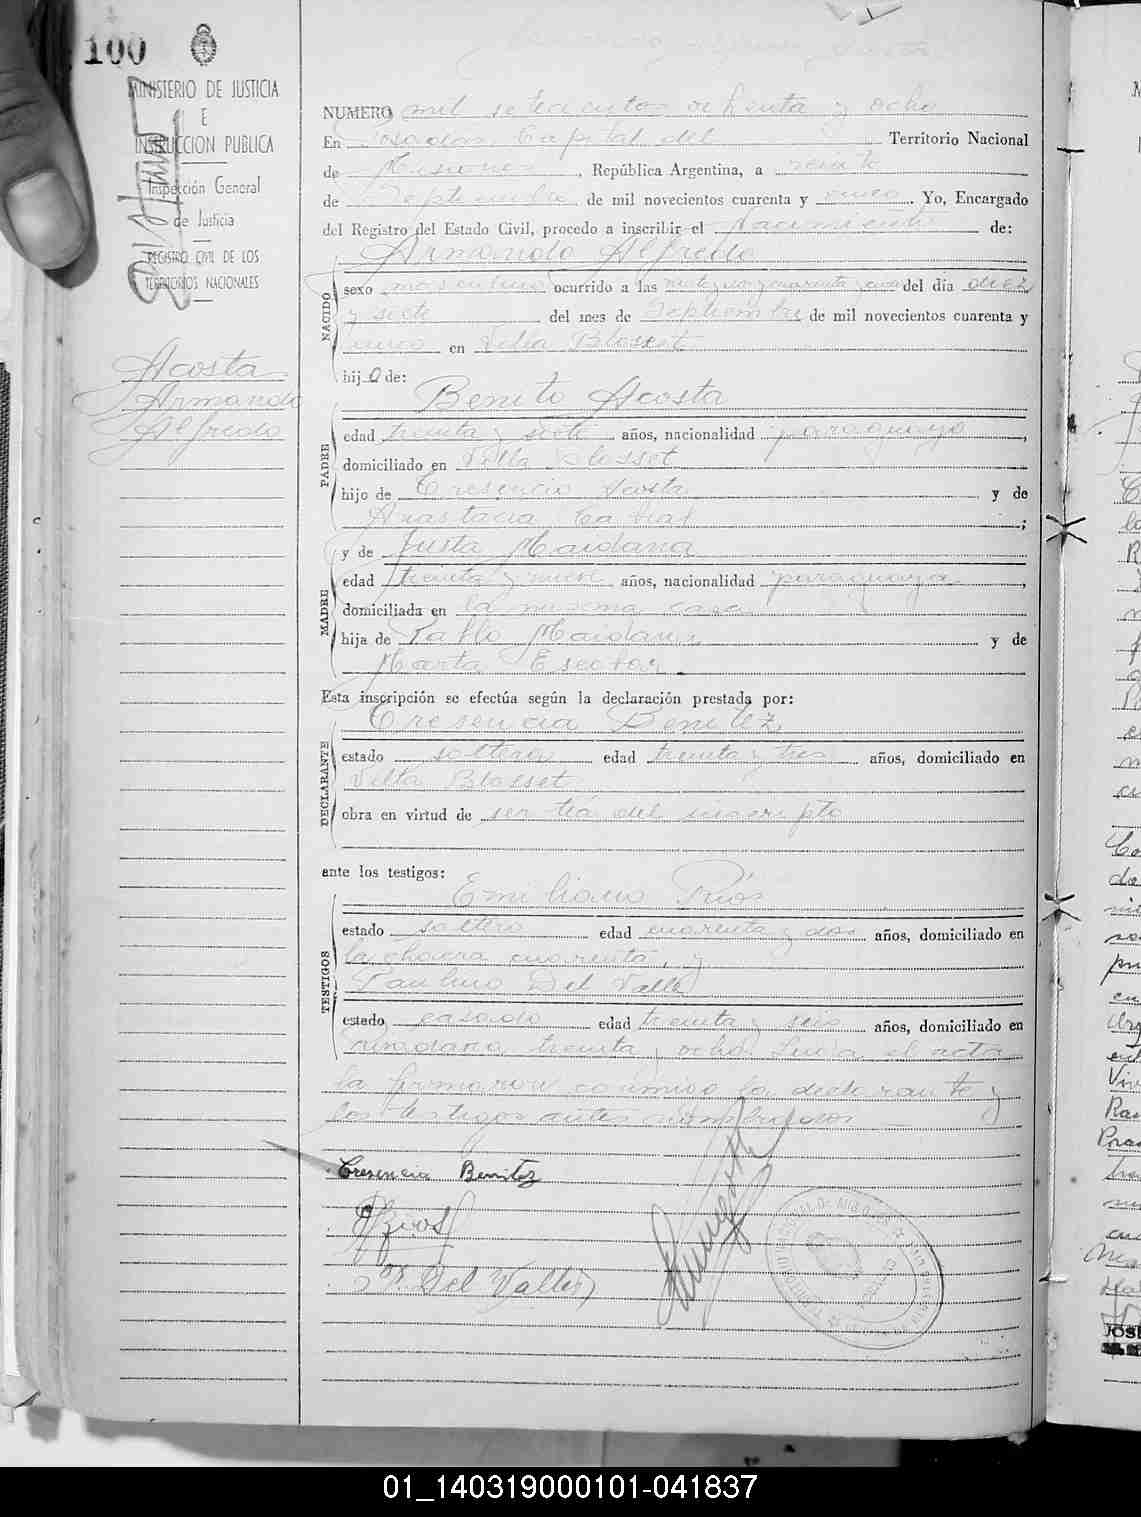 100
MINISTERIO DE JUSTICIA
E
INSTRUCCION PUBLICA
Inspección General
de Justicia
REGISTRO CIVIL DE LOS
TERRITORIOS NACIONALES
Acosta
Armando
Alfredo
NUMERO mil setecientos ochenta y ocho
En Posadas Capital del Territorio Nacional
de Misiones, República Argentina, a veinte
de Septiembre de mil novecientos cuarenta y cinco. Yo, Encargado
del Registro del Estado Civil, procedo a inscribir el Nacimiento de:
Armando Alfredo
NACIDO
sexo masculino ocurrido a las del día diez
y siete del mes de Septiembre de mil novecientos cuarenta y
cinco en Villa Blosset
hijo de:
Benito Acosta
PADRE
edad treinta y siete años, nacionalidad paraguaya,
domiciliado en Villa Blosset
hijo de Cresencio Acosta y de
Anastacia Cabral;
y de Justa Maidana
MADRE
edad treinta y nueve años, nacionalidad paraguaya,
domiciliada en la misma casa
hija de Pablo Maidana y de
Marta Escobar
Esta inscripción se efectúa según la declaración prestada por:
Cresencia Benitez
DECLARANTE
estado soltera edad treinta y tres años, domiciliado en
Villa Blosset
obra en virtud de ser tía del inscripto
ante los testigos:
Emiliano Ríos
TESTIGOS
estado soltero edad cuarenta y dos años, domiciliado en
la chacra cuarenta, y
Paulino Del Valle
estado casado edad treinta y seis años, domiciliado en
treinta y ocho. Leída el acta
la firmaron conmigo la declarante y
los testigos antes nombrados
Cresencia Benitez
E Rios
P. Del Valle
01_140319000101-041837